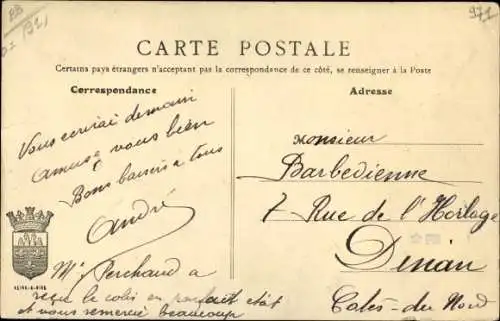 971
CARTE POSTALE
Certains pays étrangers n'acceptant pas la correspondance de ce côté, se renseigner à la Poste
Correspondance
Vous ecrirai demain
amusé vous bien
Bons baisers a tous
André
Mr Perchaud a
reçu le colis en parfait etat
et vous remercie beaucoup
Adresse
Monsieur
Barbedienne
7 Rue de l'Horloge
Dinan
Cotes-du Nord